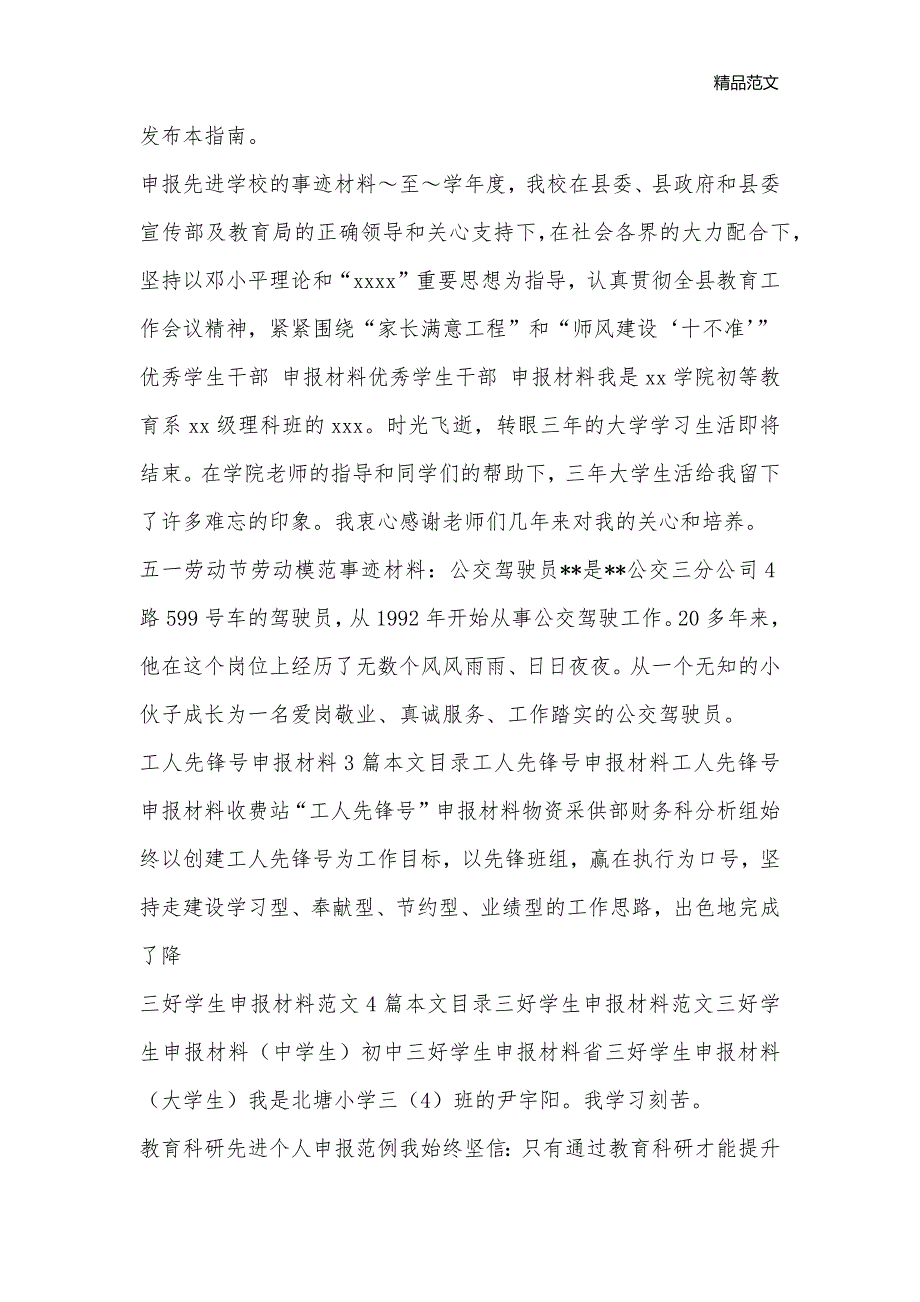 精品范文
发布本指南。
申报先进学校的事迹材料～至～学年度，我校在县委、县政府和县委
宣传部及教育局的正确领导和关心支持下，在社会各界的大力配合下，
坚持以邓小平理论和“xxxx”重要思想为指导，认真贯彻全县教育工
作会议精神，紧紧围绕“家长满意工程”和“师风建设‘十不准’”
优秀学生干部 申报材料优秀学生干部 申报材料我是 xx 学院初等教
育系 xx 级理科班的 xxx。时光飞逝，转眼三年的大学学习生活即将
结束。在学院老师的指导和同学们的帮助下，三年大学生活给我留下
了许多难忘的印象。我衷心感谢老师们几年来对我的关心和培养。
五一劳动节劳动模范事迹材料：公交驾驶员**是**公交三分公司 4
路 599 号车的驾驶员，从 1992 年开始从事公交驾驶工作。20 多年来，
他在这个岗位上经历了无数个风风雨雨、日日夜夜。从一个无知的小
伙子成长为一名爱岗敬业、真诚服务、工作踏实的公交驾驶员。
工人先锋号申报材料 3 篇本文目录工人先锋号申报材料工人先锋号
申报材料收费站“工人先锋号”申报材料物资采供部财务科分析组始
终以创建工人先锋号为工作目标，以先锋班组，赢在执行为口号，坚
持走建设学习型、奉献型、节约型、业绩型的工作思路，出色地完成
了降
三好学生申报材料范文 4 篇本文目录三好学生申报材料范文三好学
生申报材料（中学生）初中三好学生申报材料省三好学生申报材料
（大学生）我是北塘小学三（4）班的尹宇阳。我学习刻苦。
教育科研先进个人申报范例我始终坚信：只有通过教育科研才能提升